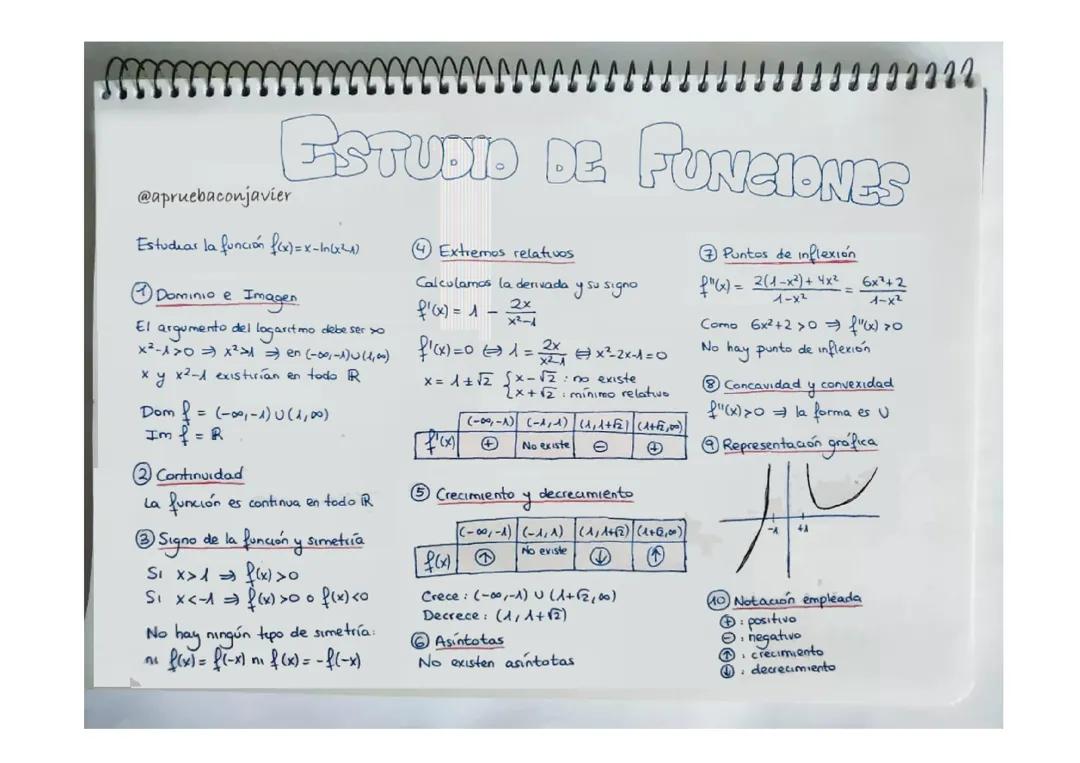 ESTUDIO DE FUNCIONES
@apruebaconjavier
Estudiar la función f(x)=x-ln(x²-1)
① Dominio e Imagen
El argumento del logaritmo debe ser >0
x²-1>0 ⇒ x²>1 ⇒ en (-∞,-1)∪(1,∞)
x y x²-1 existirían en todo ℝ
Dom f = (-∞,-1)∪(1,∞)
Im f = ℝ
② Continuidad
La función es continua en todo ℝ
③ Signo de la función y simetría
Si x>1 ⇒ f(x)>0
Si x<-1 ⇒ f(x)>0 o f(x)<0
No hay ningún tipo de simetría:
ni f(x)=f(-x) ni f(x)=-f(-x)
④ Extremos relativos
Calculamos la derivada y su signo
f'(x) = 1 - 2x/(x²-1)
f'(x)=0 ⇔ 1 = 2x/(x²-1) ⇔ x²-2x-1=0
x = 1±√2 { x-√2 : no existe
x+√2 : mínimo relativo
(-∞,-1) (-1,1) (1,1+√2) (1+√2,∞)
f'(x) ⊕ No existe ⊖ ⊕
⑤ Crecimiento y decrecimiento
(-∞,-1) (-1,1) (1,1+√2) (1+√2,∞)
f(x) ↑ No existe ↓ ↑
Crece: (-∞,-1) ∪ (1+√2,∞)
Decrece: (1,1+√2)
⑥ Asíntotas
No existen asíntotas
⑦ Puntos de inflexión
f''(x) = (2(1-x²)+4x²)/(1-x²) = (6x²+2)/(1-x²)
Como 6x²+2>0 ⇒ f''(x)>0
No hay punto de inflexión
⑧ Concavidad y convexidad
f''(x)>0 ⇒ la forma es ∪
⑨ Representación gráfica
-1 +1
⑩ Notación empleada
⊕ : positivo
⊖ : negativo
↑ : crecimiento
↓ : decrecimiento